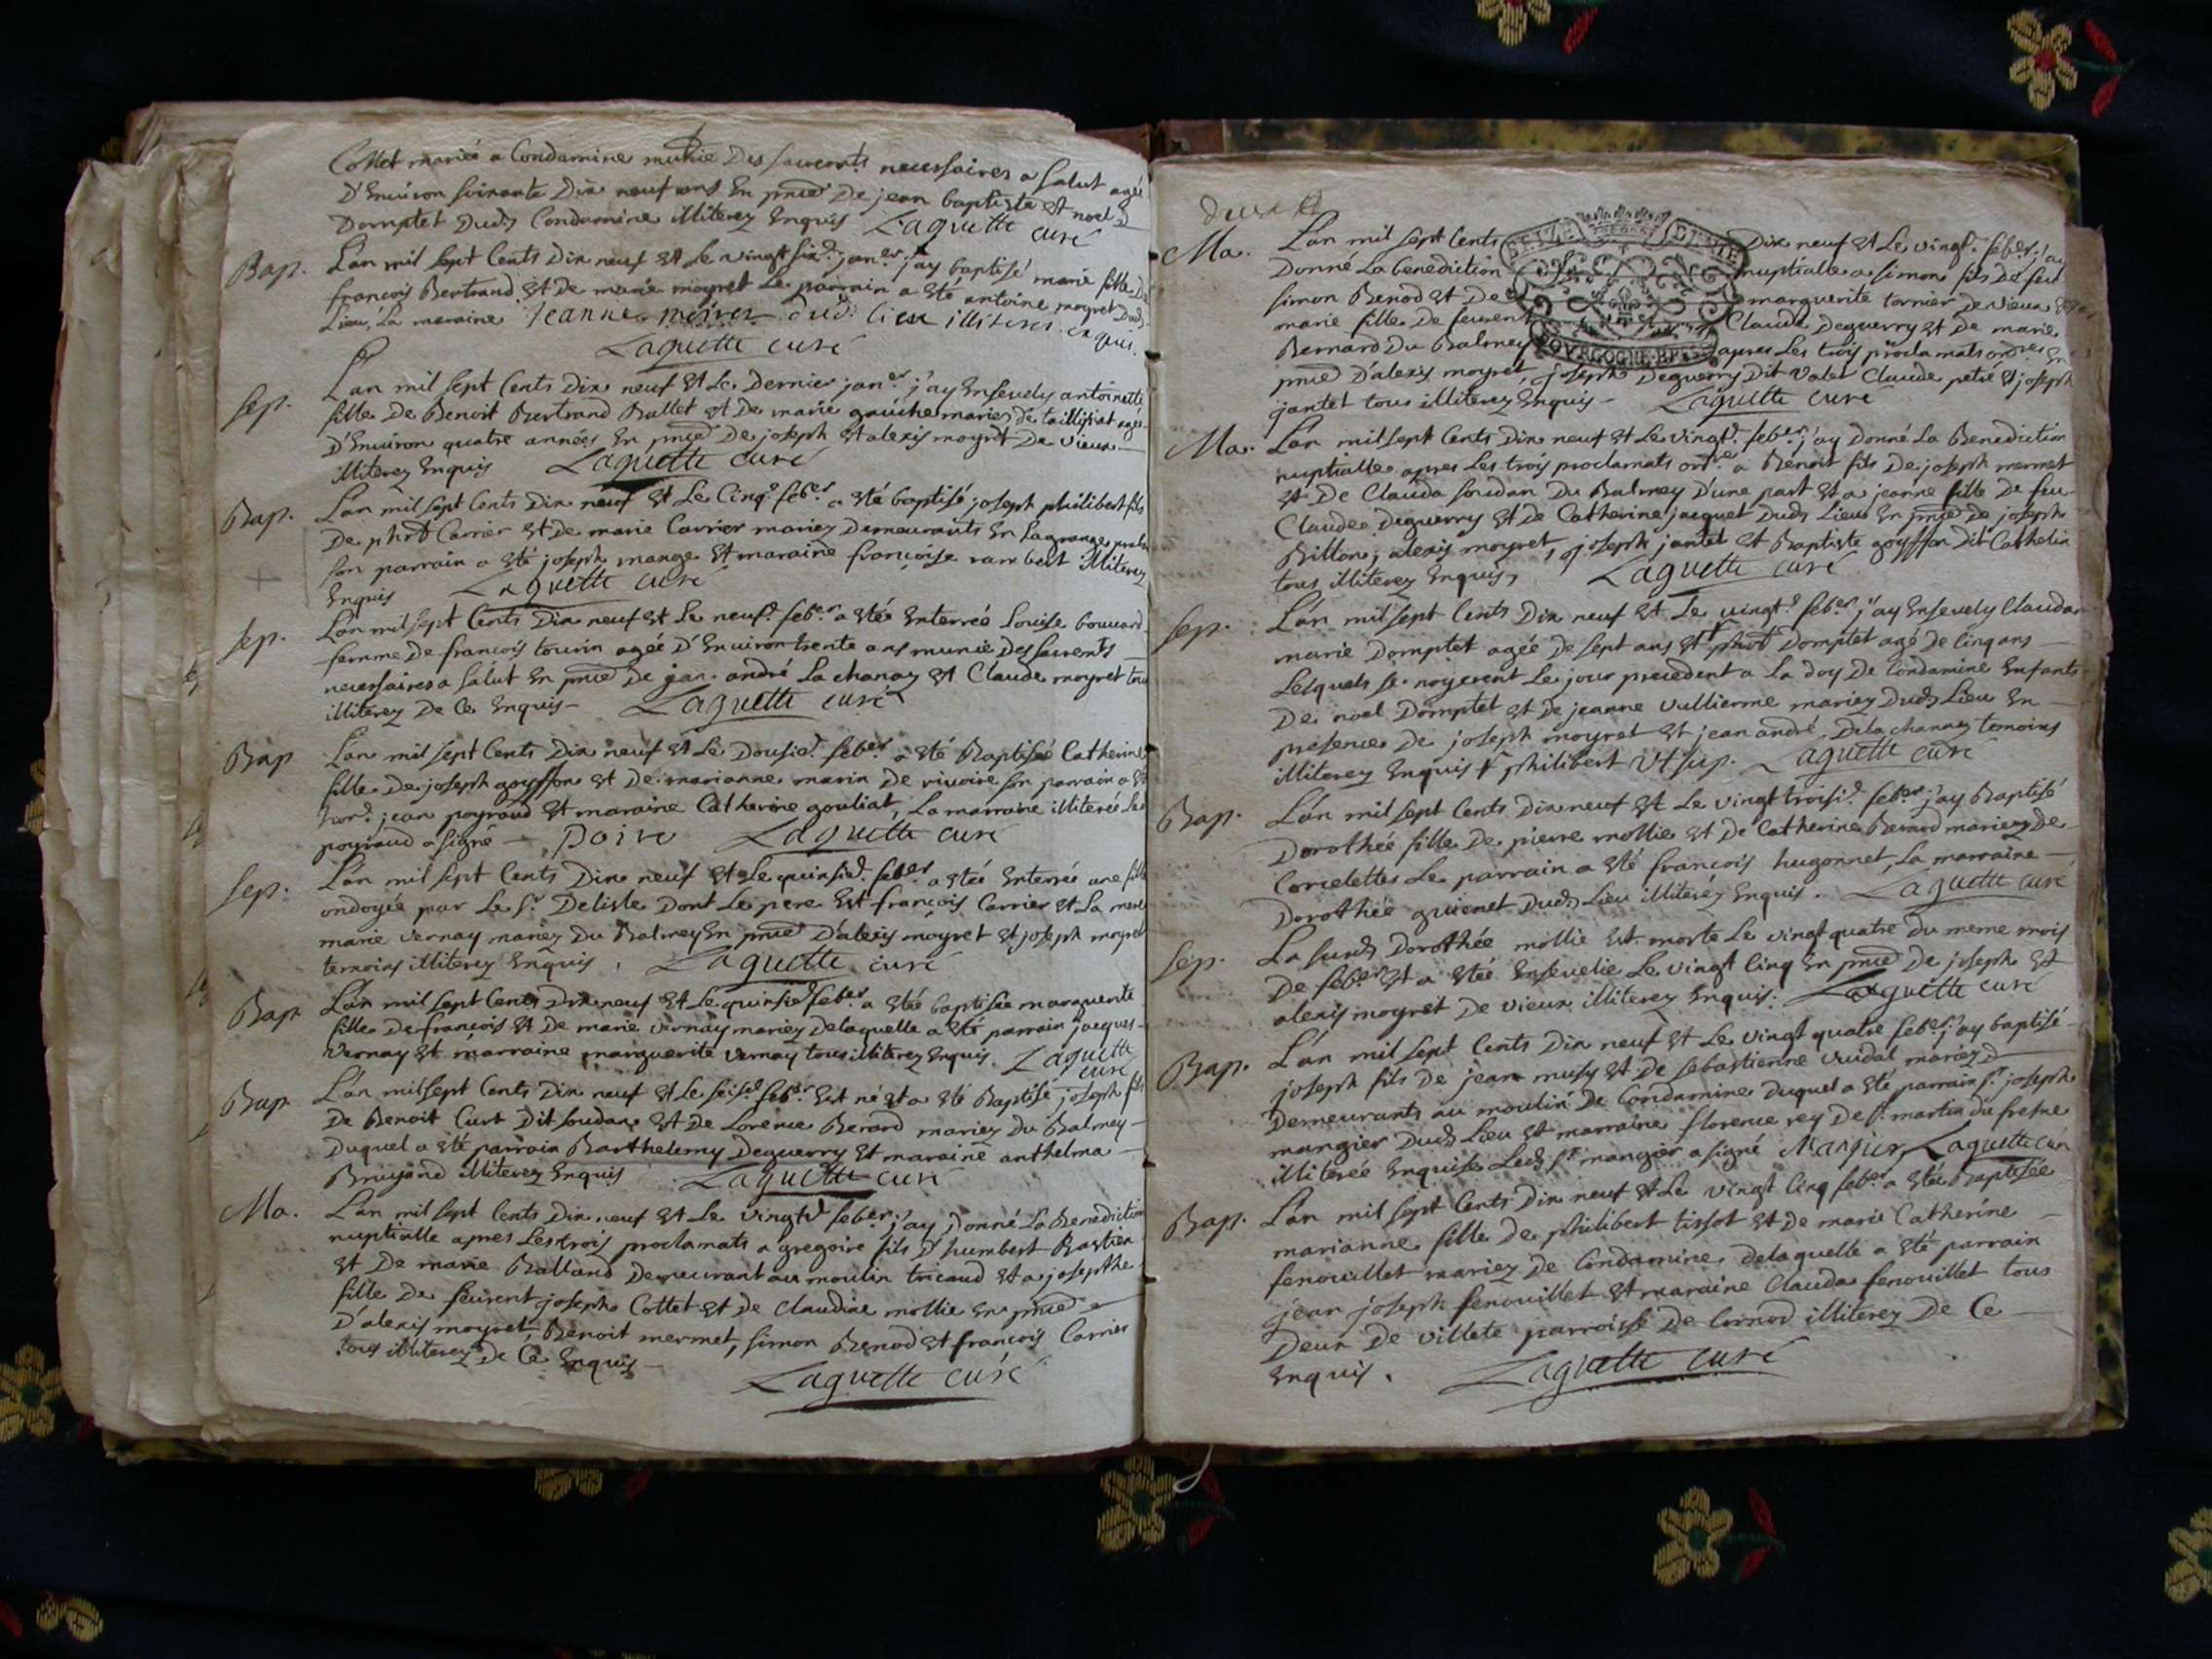 Collet mariée a Condamine munie des sacrents necessaires a salut agée
D'Environ soixante Dix neuf ans En pnce De jean baptiste Et noel
Domptet Dud Condamine illiterez Enquis Laguette curé
Bap. L'an mil sept Cents Dix neuf Et Le vingt six.e jan.er j'ay baptisé marie fille De
francois Bertrand Et De marie moyret Le parrain a Eté antoine moyret Dud
Lieu, La maraine jeanne dud. lieu illiteres enquis.
Laguette curé
Sep. L'an mil sept Cents Dix neuf Et Le Dernier jan.er j'ay Ensevely antoinette
fille De Benoit Bertrand Ballet Et De marie gauche mariez de taillisiat agée
D'Environ quatre années En pnce De joseph Et alexis moyret De vieux
illiterez Enquis Laguette curé
Bap. L'an mil sept Cents Dix neuf Et Le Cinq.e feb.er a Eté baptisé joseph philibert fils
De phrt Carrier Et De marie Carrier mariez Demeurants En Lagrange
son parrain a Eté joseph mange Et maraine francoise rambert illiterez
Enquis Laguette curé
Sep. L'an mil sept Cents Dix neuf Et Le neuf.e feb.er a Etée Enterrée Louise bouvard
femme De francois tournin agée D'Environ trente ans munie Des sacrents
necessaires a salut En pnce De jan. andré La chanay Et Claude moyret tous
illiterez De Ce Enquis Laguette curé
Bap L'an mil sept Cents Dix neuf Et Le Dousie.e feb.er a Eté Baptisée Catherine
fille De joseph goyffon Et De marianne marin De rivoire son parrain a Eté
hon.e jean poyraud Et maraine Catherine gouliat, La marraine illiterée Led
poyraud a signé Poiro Laguette curé
Sep. L'an mil sept Cents Dix neuf Et Le quinsie.e feb.er a Etée Enterrée une fille
ondoyée par Le S.r Delisle Dont Le pere Est francois Carrier Et La mere
marie vernay mariez Du Balmey En pnce D'alexis moyret Et joseph moyret
temoins illiterez Enquis. Laguette curé
Bap L'an mil sept Cents Dix neuf Et Le quinsie.e feb.er a Etée baptisée marguerite
fille De francois Et De marie vernay mariez Delaquelle a Eté parrain jacques
vernay Et marraine marguerite vernay tous illiterez Enquis. Laguette
curé
Bap L'an mil sept Cents Dix neuf Et Le seis.e feb.er Est né Et a Eté Baptisé joseph fils
De Benoit Curt Dit soudan Et De Lorence Berard mariez Du Balmey
Duquel a Eté parrain Barthelemy Deguerry Et maraine anthelma
Bruyand illiterez Enquis Laguette curé
Ma. L'an mil sept Cents Dix neuf Et Le vingt.e feb.er j'ay Donné La Benediction
nuptialle apres Les trois proclamats a gregoire fils D'humbert Bastien
Et De marie Balland Demeurant au moulin tricaud Et a josepthe
fille De feurent joseph Collet Et De Claudine mollie En pnce
D'alexis moyret, Benoit mermet, simon Benod Et francois Carrier
tous illiterez De Ce Enquis
Laguette curé
Ma. L'an mil sept Cents Dix neuf Et Le vingt.e feb.er j'ay
Donné La benediction nuptialle a simon fils De feu
simon Benod Et De marguerite tornier De vieux
marie fille De feurent Claude Deguerry Et De marie
Bernard Du Balmey apres Les trois proclamats ordres En
pnce D'alexis moyret, joseph Deguerry Dit valet Claude petie Et joseph
jantet tous illiterez Enquis Laguette curé
Ma. L'an mil sept Cents Dix neuf Et Le vingt.e feb.er j'ay Donné La Benediction
nuptialle apres Les trois proclamats ord.res a Benoit fils De joseph mermet
Et De Clauda soudan Du Balmey D'une part Et a jeanne fille De feu
Claude Deguerry Et De Catherine jacquet Dud Lieu En pnce De joseph
Billon, alexis moyret, joseph jantet Et Baptiste goyffon Dit Cathelin
tous illiterez Enquis, Laguette curé
Sep. L'an mil sept Cents Dix neuf Et Le vingt.e feb.er j'ay Ensevely Clauda
marie Domptet agée De sept ans Et phrt Domptet agé De Cinq ans
Lesquels se noyerent Le jour precedent a La doy De Condamine Enfants
De noel Domptet Et De jeanne vullierme mariez Dud Lieu En
presence De joseph moyret Et jean andré Delachanay temoins
illiterez Enquis philibert Ut sup. Laguette curé
Bap. L'an mil sept Cents Dix neuf Et Le vingt troisi.e feb.er j'ay Baptisé
Dorothée fille De pierre mollie Et De Catherine Berard mariez De
Corcelettes Le parrain a Eté francois hugonnet, La marraine
Dorothée guienet Dud Lieu illiterez Enquis. Laguette curé
Sep. La susd Dorothée mollie Est morte Le vingt quatre du meme mois
De feb.er Et a Etée Ensevelie Le vingt Cinq En pnce De joseph Et
alexis moyret De vieux illiterez Enquis. Laguette curé
Bap. L'an mil sept Cents Dix neuf Et Le vingt quatre feb.er j'ay baptisé
joseph fils De jean musy Et De sebastienne vuidal mariez
Demeurants au moulin De Condamine Duquel a Eté parrain S.r joseph
mangier Dud Lieu Et marraine florence rey De S.t martin du fresne
illiterée Enquise Led S.r mangier a signé Mangier Laguette curé
Bap. L'an mil sept Cents Dix neuf Et Le vingt Cinq feb.er a Etée Baptisée
marianne fille De philibert tissot Et De marie Catherine
fenouillet mariez De Condamine Delaquelle a Eté parrain
jean joseph fenouillet Et maraine Clauda fenouillet tous
Deux De villete parroisse De Cornod illiterez De Ce
Enquis. Laguette curé